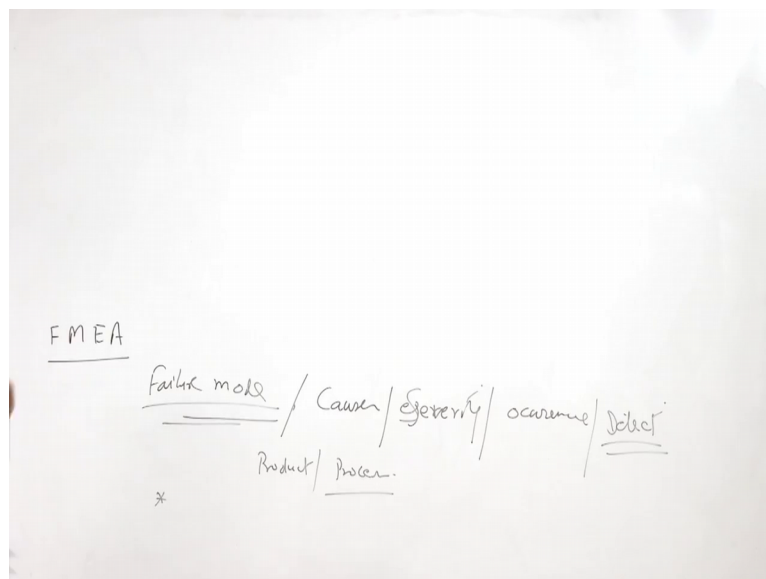 FMEA
Failure mode / Causes / Severity / ocurence / Detect
Product / Process.
*